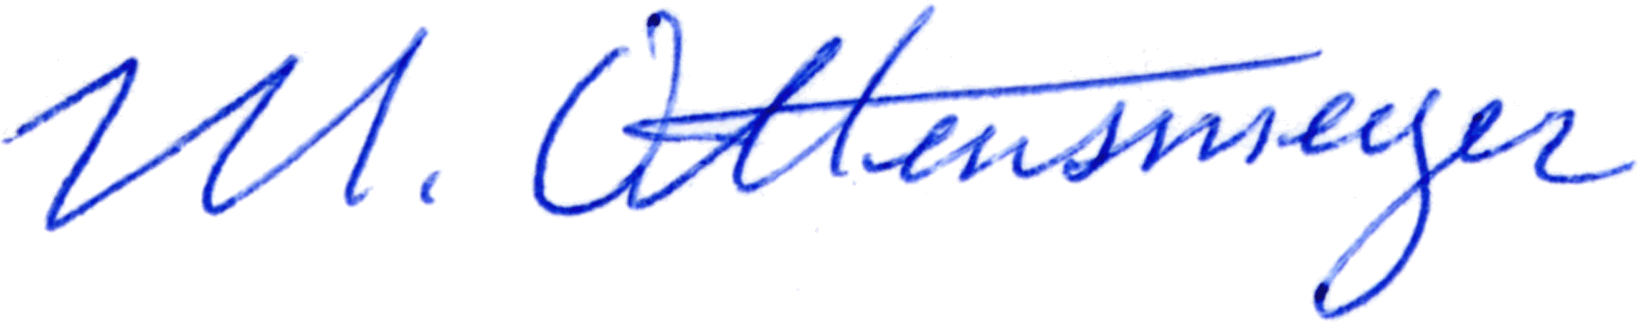 M. Ottensmeyer